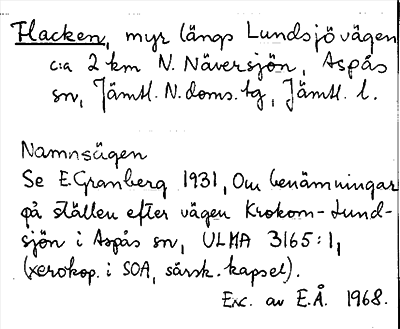 Flacken, myr längs Lundsjövägen
c:a 2 km N. Näversjön, Aspås
sn, Jämtl. N. doms. tg, Jämtl. l.
Namnsägen
Se E Granberg 1931, Om benämningar
på ställen efter vägen Krokom-Lund-
sjön i Aspås sn, ULMA 3165:1,
(xerokop. i SOA, särsk. kapsel).
Exc. av E.Å. 1968.